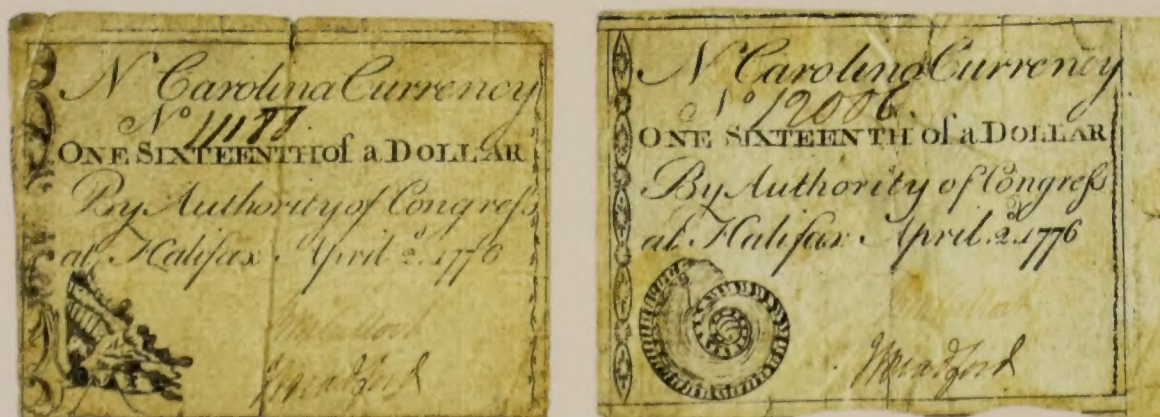 N Carolina Currency
No 11188.
ONE SIXTEENTH of a DOLLAR
By Authority of Congreſs
at Halifax April 2d. 1776
N Carolina Currency
No 12006.
ONE SIXTEENTH of a DOLLAR
By Authority of Congreſs
at Halifax April 2d. 1776